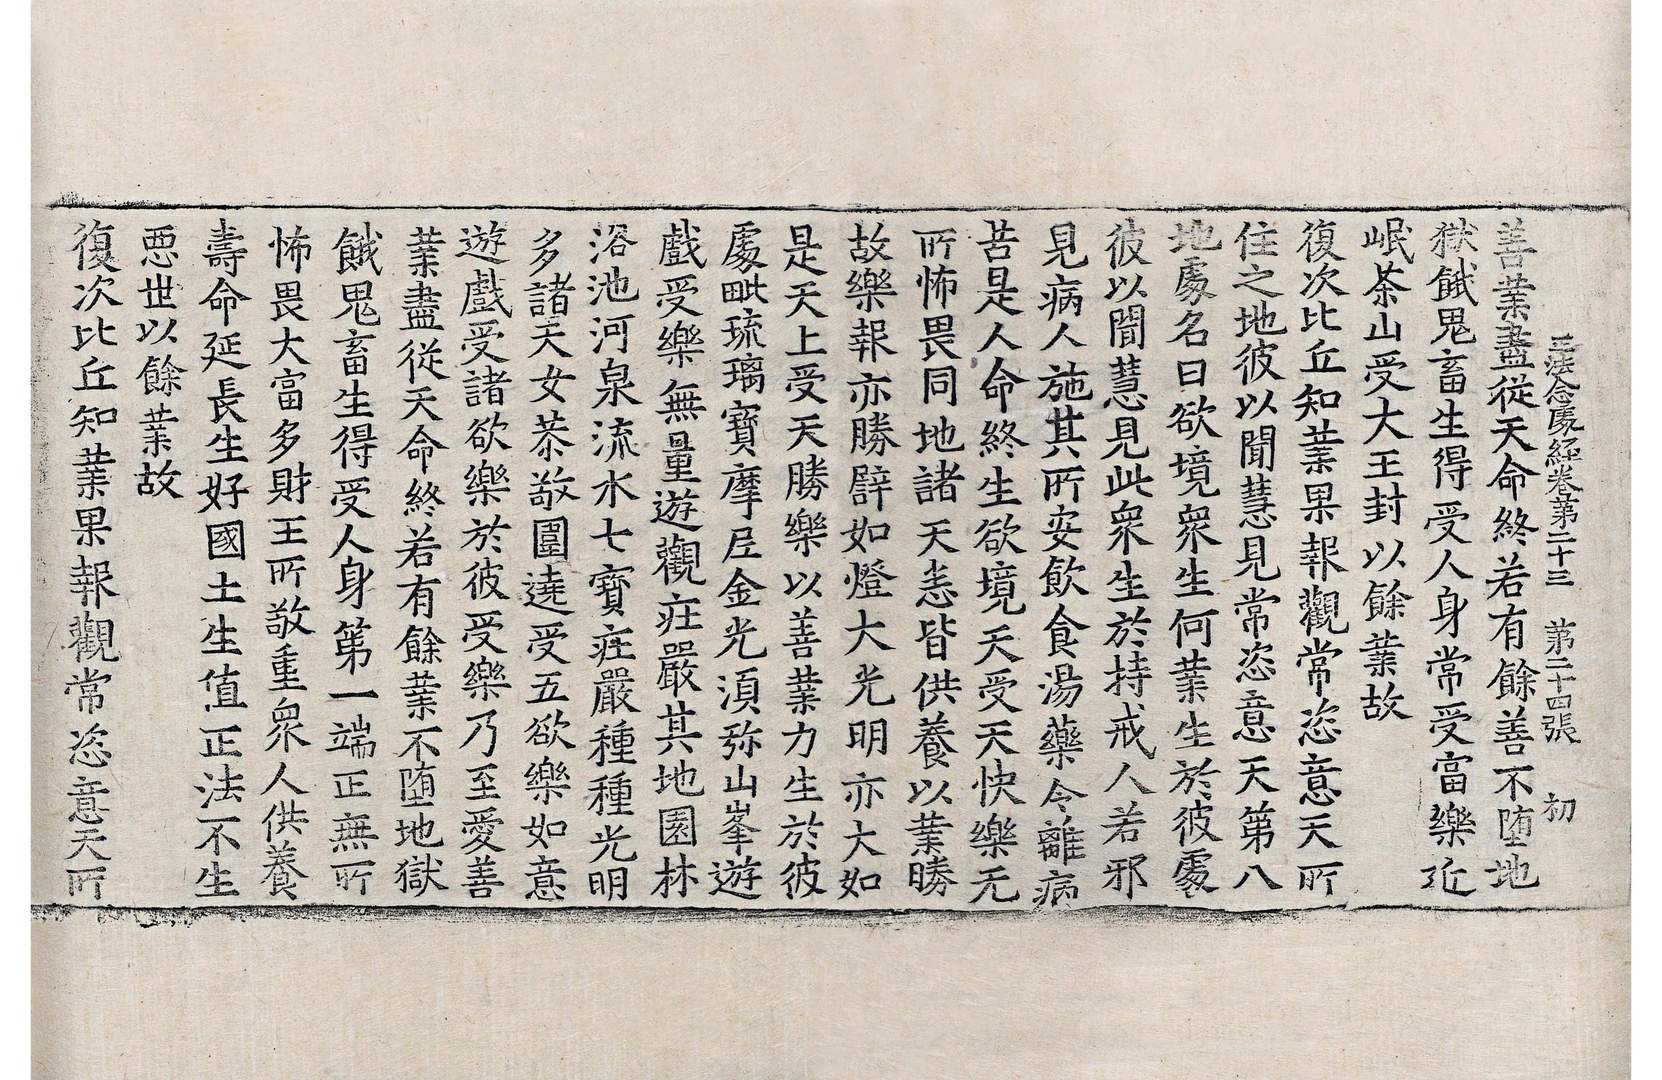 三法念處經卷第二十三　第二十四張　初
善業盡從天命終若有餘善不墮地
獄餓鬼畜生得受人身常受富樂近
岷茶山受大王封以餘業故
復次比丘知業果報觀常恣意天所
住之地彼以聞慧見常恣意天第八
地處名曰欲境衆生何業生於彼處
彼以聞慧見此衆生於持戒人若邪
見病人施其所安飲食湯藥令離病
苦是人命終生欲境天受天快樂无
所怖畏同地諸天恙皆供養以業勝
故樂報亦勝譬如燈大光明亦大如
是天上受天勝樂以善業力生於彼
處毗琉璃寶摩尼金光湏弥山峯遊
戲受樂無量遊觀莊嚴其地園林
浴池河泉流水七寶莊嚴種種光明
多諸天女恭敬圍遶受五欲樂如意
遊戲受諸欲樂於彼受樂乃至愛善
業盡從天命終若有餘業不墮地獄
餓鬼畜生得受人身第一端正無所
怖畏大富多財王所敬重衆人供養
壽命延長生好國土生值正法不生
惡世以餘業故
復次比丘知業果報觀常恣意天所